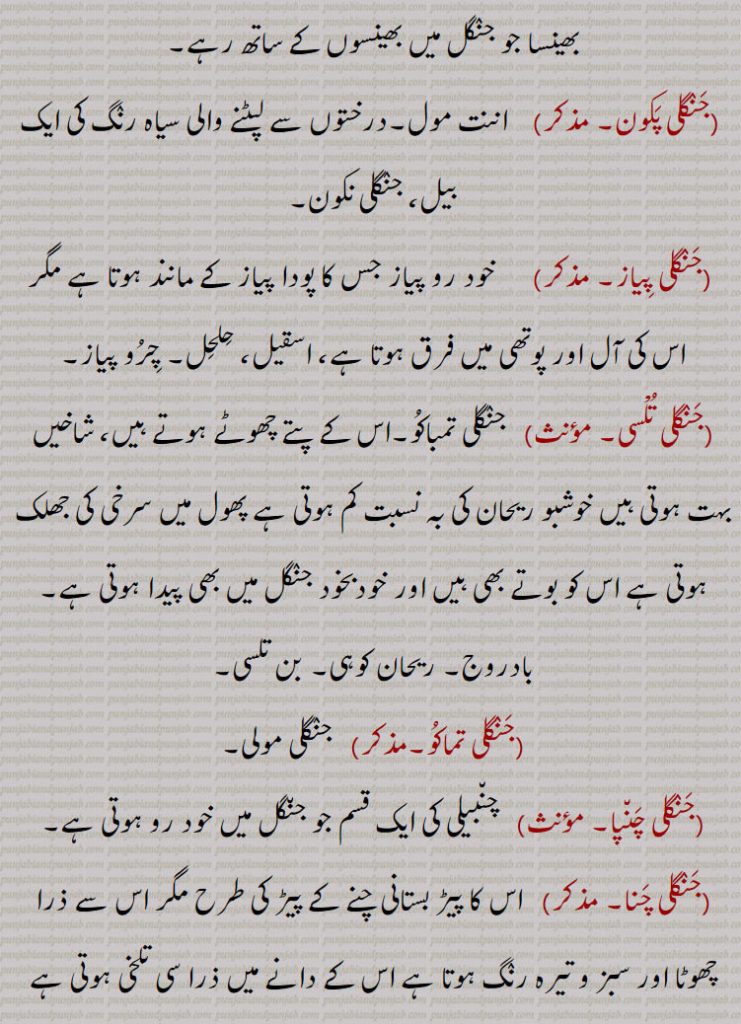 بھینسا جو جنگل میں بھینسوں کے ساتھ رہے۔
(جَنگلی پَکون۔ مذکر) اننت مول۔درختوں سے لپٹنے والی سیاہ رنگ کی ایک
بیل، جنگلی نکون۔
(جَنگلی پِیاز۔ مذکر) خود رو پیاز جس کا پودا پیاز کے مانند ہوتا ہے مگر
اس کی آل اور پوتھی میں فرق ہوتا ہے، اسقیل، حِلحِل۔ چِرُو پیاز۔
(جَنگلی تُلْسی۔ مؤنث) جنگلی تمباکوُ۔اس کے پتے چھوٹے ہوتے ہیں، شاخیں
بہت ہوتی ہیں خوشبو ریحان کی بہ نسبت کم ہوتی ہے پھول میں سرخی کی جھلک
ہوتی ہے اس کو بوتے بھی ہیں اور خودبخود جنگل میں بھی پیدا ہوتی ہے۔
بادروج۔ ریحان کوہی۔ بن تلسی۔
(جَنگلی تماکوُ۔مذکر) جنگلی مولی۔
(جَنگلی چَنّپا۔ مؤنث) چنّبیلی کی ایک قسم جو جنّگل میں خود رو ہوتی ہے۔
(جَنگلی چَنا۔ مذکر) اس کا پیڑ بستانی چنے کے پیڑ کی طرح مگر اس سے ذرا
چھوٹا اور سبز و تیرہ رنگ ہوتا ہے اس کے دانے میں ذرا سی تلخی ہوتی ہے